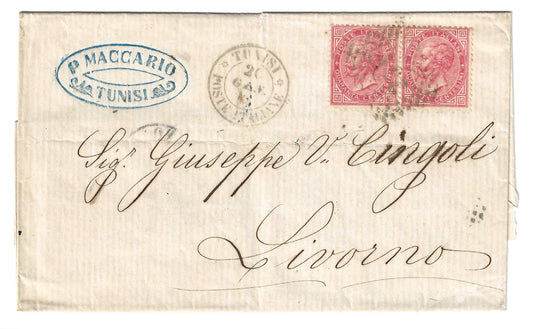 P. MACCARIO
TUNISI
TUNISI
20
POSTE ITALIANE
POSTE ITALIANE
Sigr. Giuseppe Vn. Cingoli
Livorno